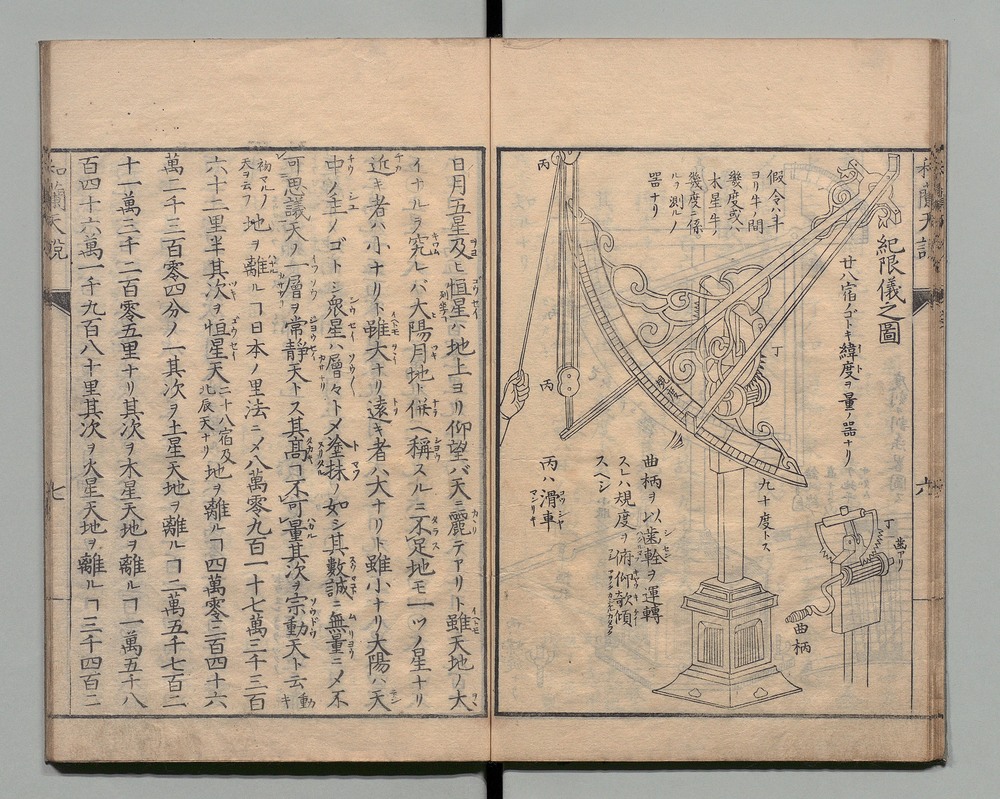 和蘭天説
六
紀限儀之圖
廿八宿ノゴトキ緯度ヲ量ノ器ナリ
假令ハ斗
ヨリ牛ノ間
幾度或ハ
木星牛ノ
幾度ニ係
ルヲ測ルノ
器ナリ
丙
丙
丁
規度
九十度トス
曲柄ヲ以歯軽ヲ運轉
スレハ規度ヲ俯仰欹傾
スヘシ
丙ハ滑車
丁
歯アリ
曲柄
日月五星及ヒ恒星ハ地上ヨリ仰望バ天ニ麗テアリト雖天地ノ大
イナルヲ究レバ大陽月地ト併ヘ稱スルニ不足地モ一ツノ星ナリ
近キ者ハ小ナリト雖大ナリ遠キ者ハ大ナリト雖小ナリ大陽ハ天
中ノ主ノゴトシ衆星ハ層々トメ塗抹ノ如シ其數誠ニ無量ニメ不
可思議天ノ一層ヲ常靜天トス其髙ヿ不可量其次ヲ宗動天ト云動キ
初マルノ天ヲ云フ地ヲ離ルヿ日本ノ里法ニメ八萬零九百一十七萬三千三百
六十二里半其次ヲ恒星天二十八宿及北辰天ナリ地ヲ離ルヿ四萬零二百四十六
萬二千三百零四分ノ一其次ヲ土星天地ヲ離ルヿ二萬五千七百二
十一萬三千二百零五里ナリ其次ヲ木星天地ヲ離ルヿ一萬五千八
百四十六萬一千九百八十里其次ヲ火星天地ヲ離ルヿ三千四百二
和蘭天説
七